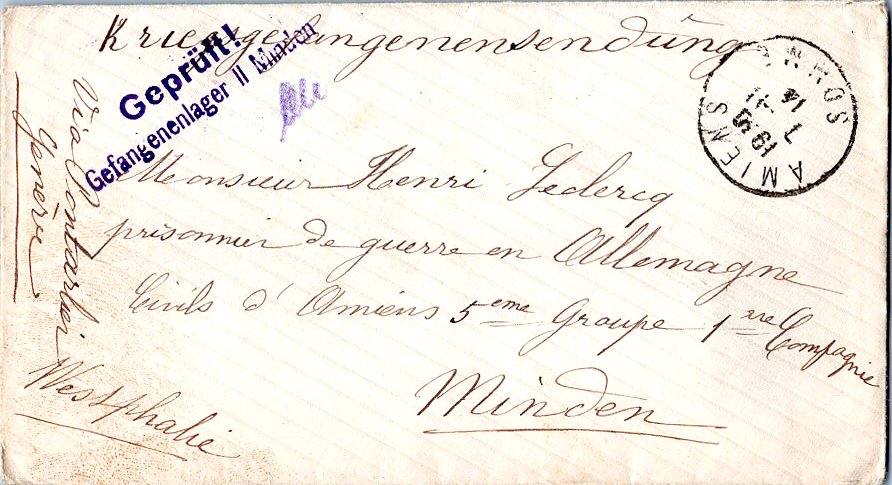 Kriegsgefangenensendüng
Geprüft!
Gefangenenlager II Minden
AMIENS
SOMME
Monsieur Henri Leclercq
prisonnier de guerre en Allemagne
Civils d'Amiens 5eme Groupe 1ere Compagnie
Minden
Westphalie
Via Pontarlier
Genève